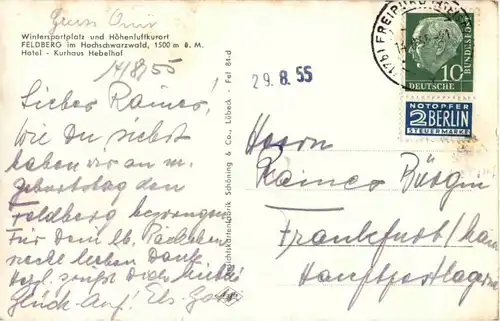 Gruss Omi
Wintersportplatz und Höhenluftkurort
FELDBERG im Hochschwarzwald, 1500 m ü. M.
Hotel - Kurhaus Hebelhof
14/8/55
Lieber Rainer!
Wie Du siehst
haben wir an m.
Geburtstag den
Feldberg bezwungen
Für Dein lb. Päckchen
recht lieben Dank
Herzl. grüßt Dich
Glück-Auf! Els.
Ansichtskartenfabrik Schöning & Co., Lübeck · Fel 84-d
29. 8. 55
(17b) FREIBURG
10
DEUTSCHE
BUNDESPOST
NOTOPFER
2 BERLIN
STEUERMARKE
Herrn
Rainer Bürgin
Frankfurt/Main
Hauptpostlagernd